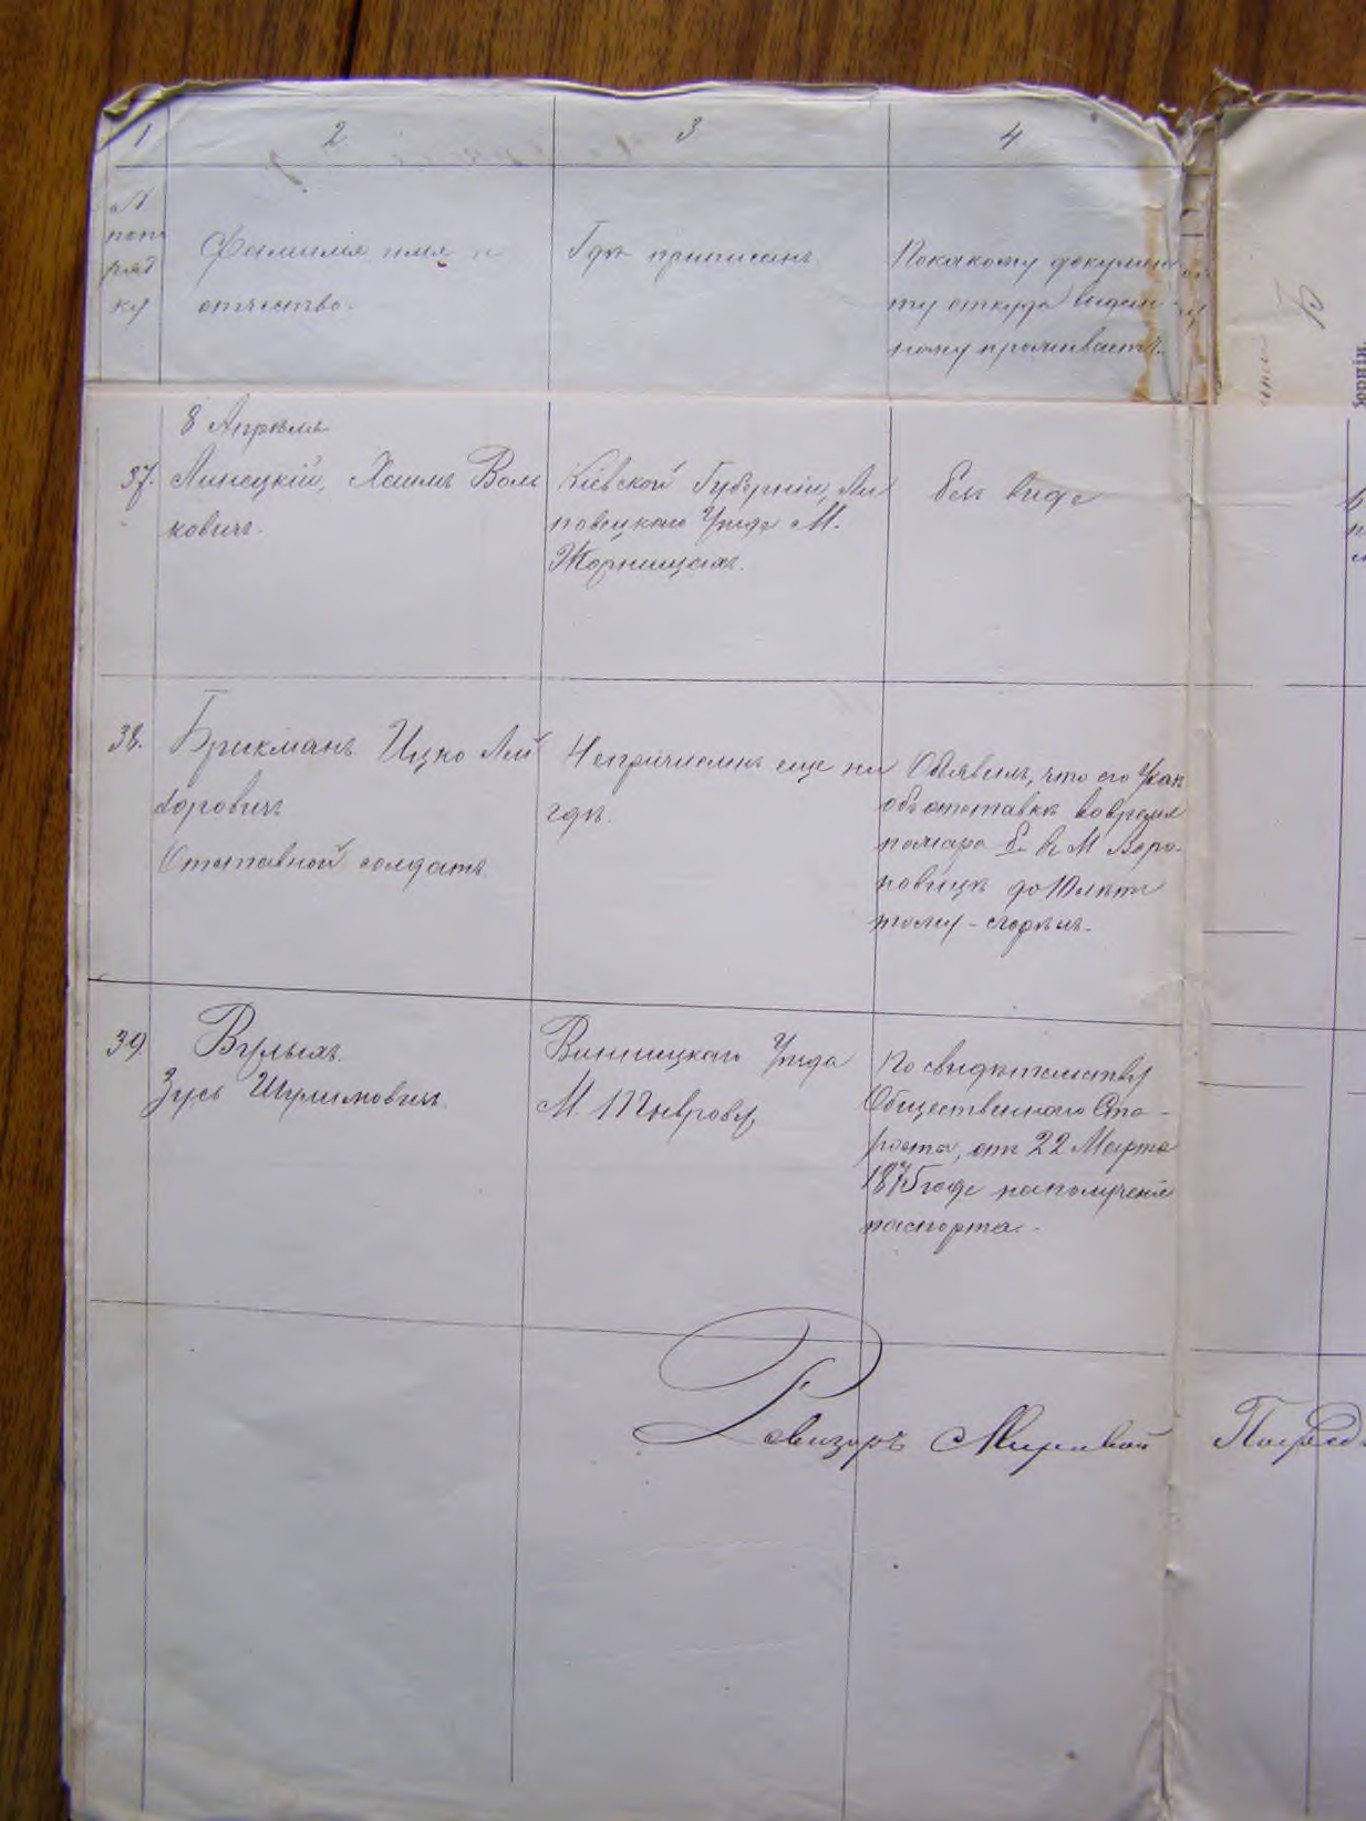 1 2 3 4
№
поп
ряд
ку
Фамилія имя и
отчество.
Гдѣ приписанъ
По какому докумен
ту откуда выдан
ному проживаетъ.
8 Апрѣля
37. Линецкій, Хаимъ Воль
ковичъ.
Кіевской Губерніи, Ли
повецкаго Уѣзда М.
Жорнищахъ.
безъ вида
38. Брикманъ Ицко Лей
боровичъ
Отставной солдатъ
Непричисленъ еще ни
гдѣ.
Объявилъ, что его Указ
объ отставкѣ вовремя
пожара въ М Воро-
новицѣ до 10 лѣтъ
тому - сгорѣлъ.
39. Вулыхъ
Зусь Шулимовичъ.
Винницкаго Уѣзда
М. Пиврова,
По свидѣтельству
Общественнаго Ста-
росты, отъ 22 Марта
1875 года на полученіе
паспорта.
Ревизоръ Мировой Посред